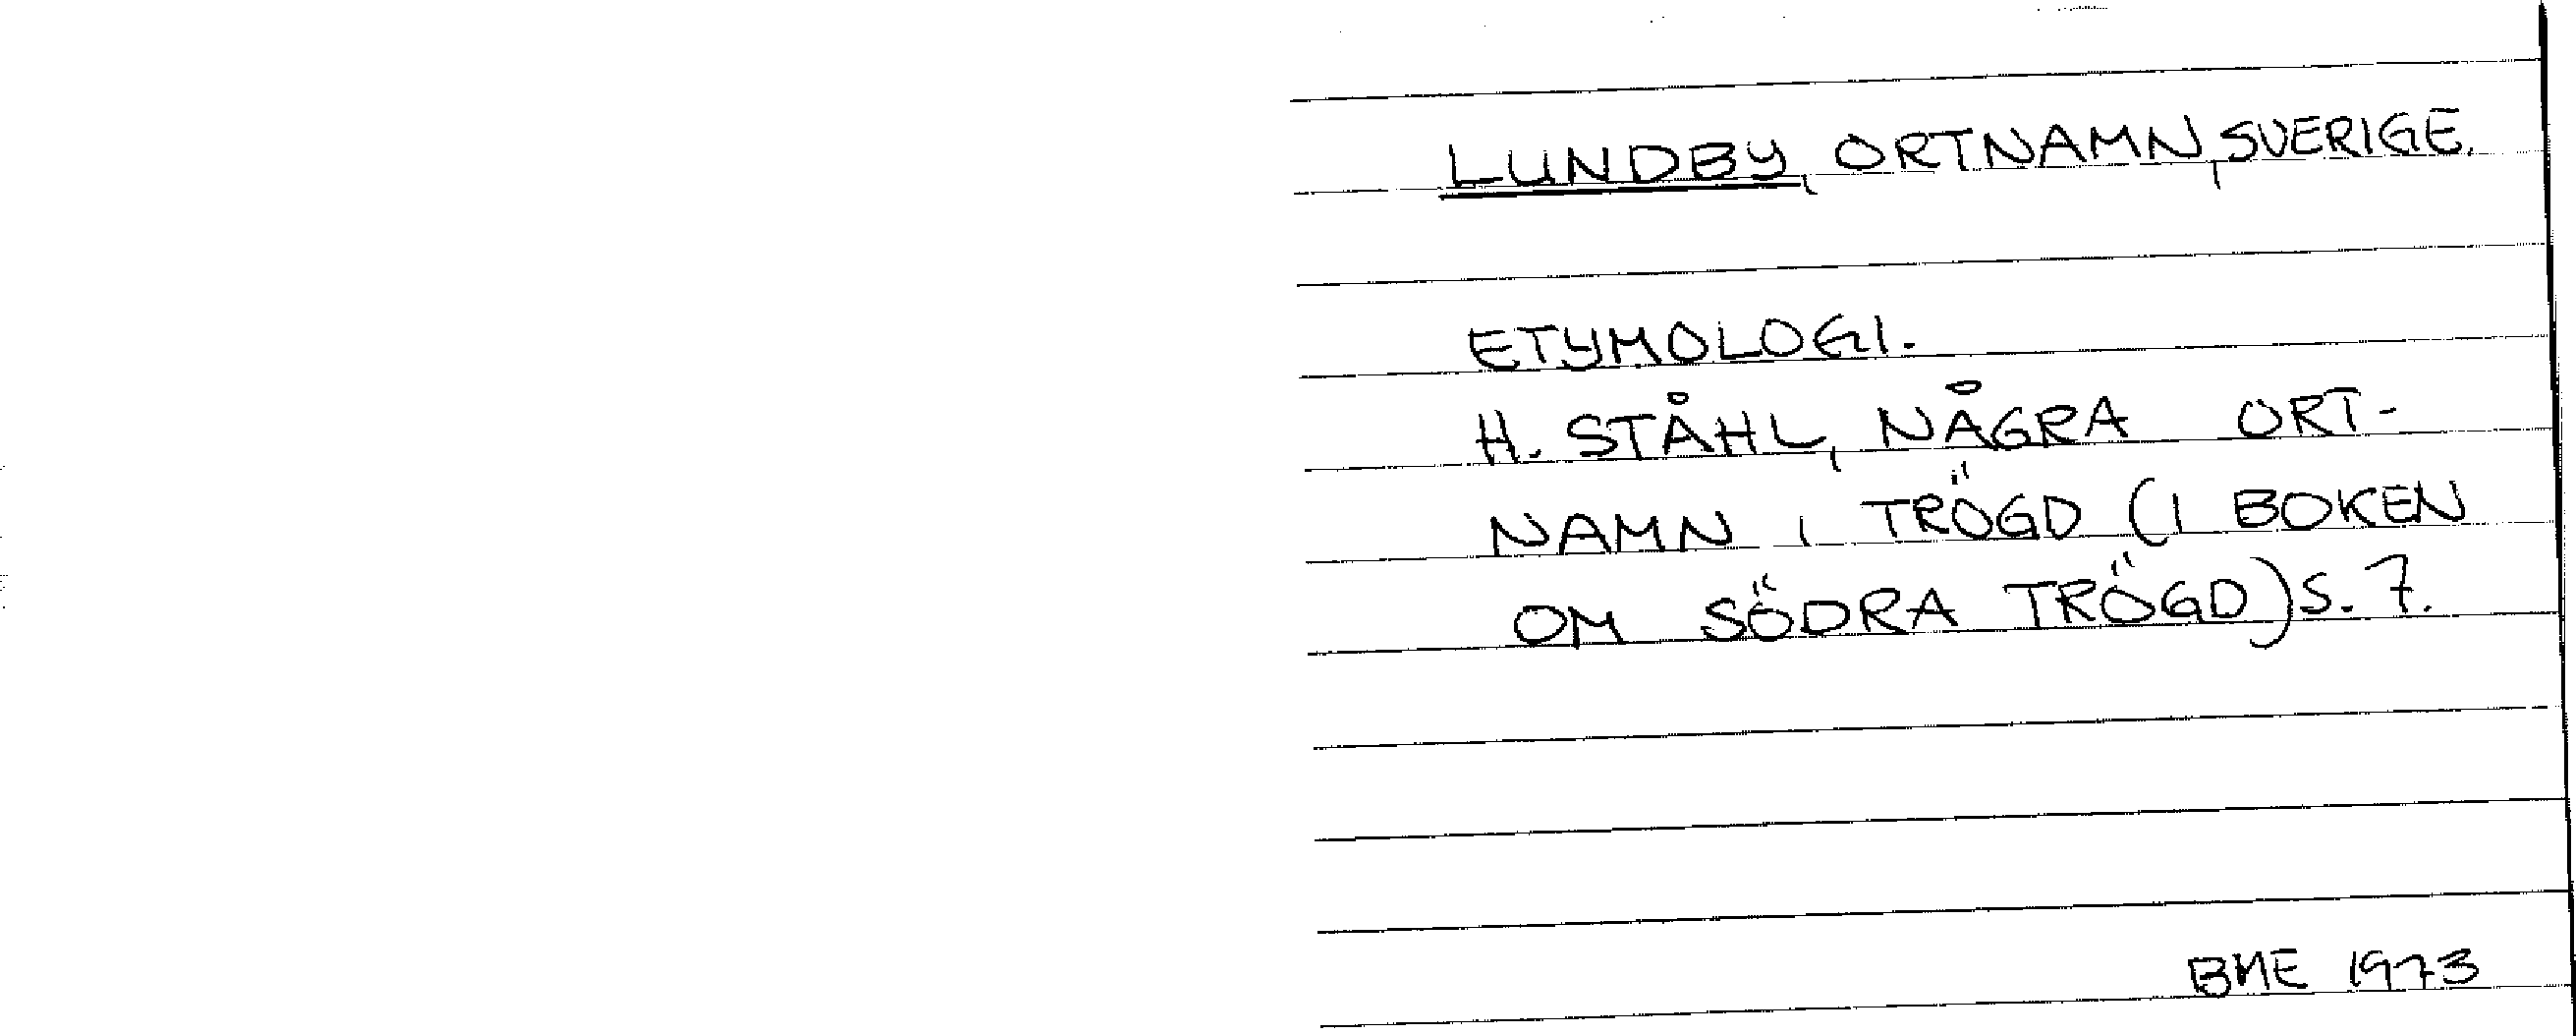 LUNDBY, ORTNAMN, SVERIGE.
ETYMOLOGI.
H. STÅHL, NÅGRA ORT-
NAMN I TRÖGD (I BOKEN
OM SÖDRA TRÖGD) S. 7.
BME 1973